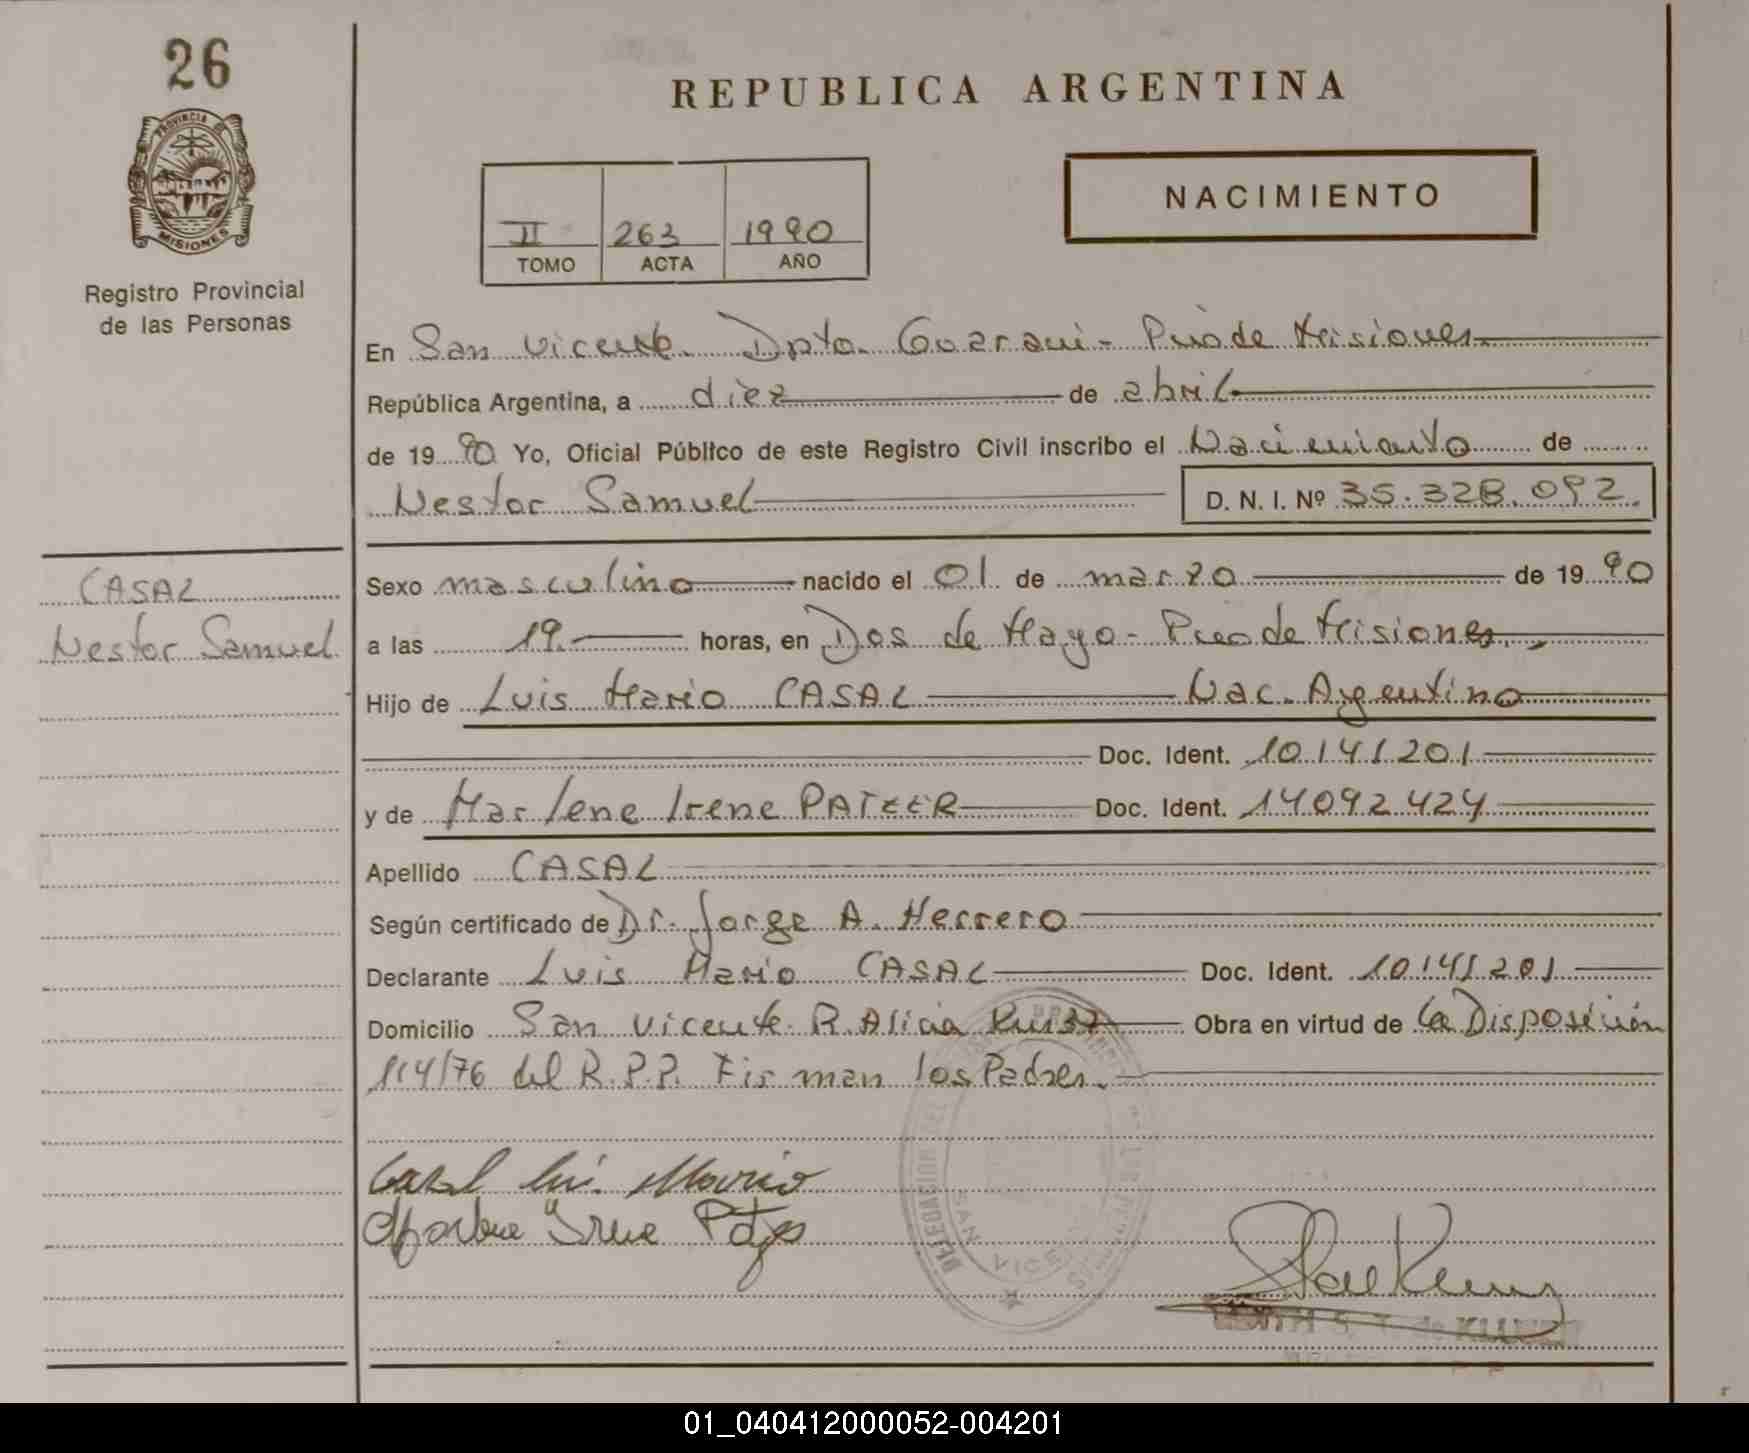 26
PROVINCIA DE
MISIONES
Registro Provincial
de las Personas
REPUBLICA ARGENTINA
NACIMIENTO
II 263 1990
TOMO ACTA AÑO
En San Vicente Dpto. Guarani - Pcia de Misiones
República Argentina, a diez de abril
de 19 90 Yo, Oficial Público de este Registro Civil inscribo el Nacimiento de
Nestor Samuel D. N. I. Nº 35.328.092.
CASAL
Nestor Samuel
Sexo masculino nacido el 01 de marzo de 19 90
a las 19.- horas, en Dos de Mayo - Pcia de Misiones
Hijo de Luis Mario CASAL Nac. Argentino
Doc. Ident. 10141201
y de Marlene Irene Doc. Ident. 14092424
Apellido CASAL
Según certificado de Dr. Jorge A. Herrero
Declarante Luis Mario CASAL Doc. Ident. 10141201
Domicilio San Vicente R. Alicia Obra en virtud de la Disposición
114/76 del R.P.P. Firman los Padres.
Casal Luis Mario
Irene
DELEGACION DEL
SAN VICENTE
01_040412000052-004201